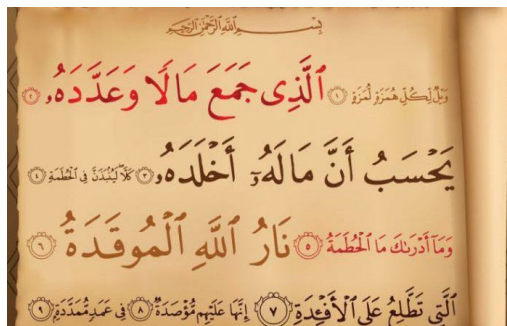 بِسْمِ اللَّهِ الرَّحْمَٰنِ الرَّحِيمِ
وَيْلٌ لِّكُلِّ هُمَزَةٍ لُّمَزَةٍ ١ ٱلَّذِى جَمَعَ مَالًا وَعَدَّدَهُۥ ٢
يَحْسَبُ أَنَّ مَالَهُۥٓ أَخْلَدَهُۥ ٣ كَلَّا لَيُنۢبَذَنَّ فِى ٱلْحُطَمَةِ ٤
وَمَآ أَدْرَىٰكَ مَا ٱلْحُطَمَةُ ٥ نَارُ ٱللَّهِ ٱلْمُوقَدَةُ ٦
ٱلَّتِى تَطَّلِعُ عَلَى ٱلْأَفْـِٔدَةِ ٧ إِنَّهَا عَلَيْهِم مُّؤْصَدَةٌ ٨ فِى عَمَدٍ مُّمَدَّدَةٍۭ ٩